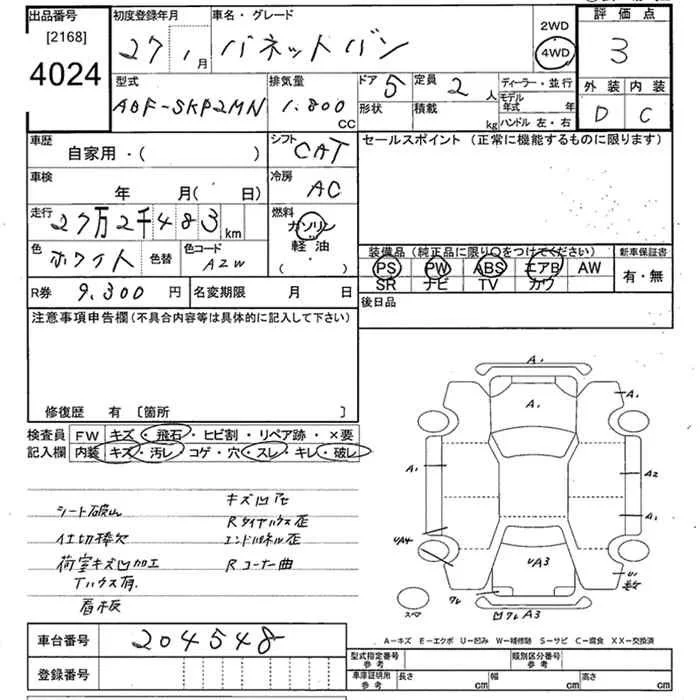 出品番号 初度登録年月 車名・グレード 2WD 評価点
[2168] 27 1月 バネットバン 4WD 3
4024
型式 排気量 ドア 5 定員 2人 ディーラー・並行 外装 内装
ABF-SKP2MN 1.800 CC 形状 積載 kg モデル年式 年 D C
ハンドル 左・右
車歴 シフト CAT セールスポイント (正常に機能するものに限ります)
自家用・( )
車検 年 月( 日) 冷房 AC
走行 27万2千483km 燃料 ガソリン
軽油
( )
色 ホワイト 色替 色コード AZW 装備品 (純正品に限り○をつけてください) 新車保証書
PS PW ABS エアB AW 有・無
SR ナビ TV カワ
R券 9.300円 名変期限 月 日 後日品
注意事項申告欄(不具合内容等は具体的に記入して下さい)
修復歴 有 [箇所 ]
検査員 FW キズ・飛石・ヒビ割・リペア跡・×要
記入欄 内装 キズ・汚レ・コゲ・穴・スレ・キレ・破レ
シート破レ
仕切棒欠
荷室キズ凹加工
Tハウス有
看板
キズ凹
Rタイヤハウス歪
エンドパネル歪
Rコーナー曲
A1
A1
A1
A1
A2
A1
UA4
UA3
U1
ワレ
凹ワレA3
スペア
A-キズ E-エクボ U-凹み W-補修跡 S-サビ C-腐食 XX-交換済
車台番号 204548
登録番号
型式指定番号 参考 類別区分番号 参考
車庫証明用 参考 長さ cm 幅 cm 高さ cm